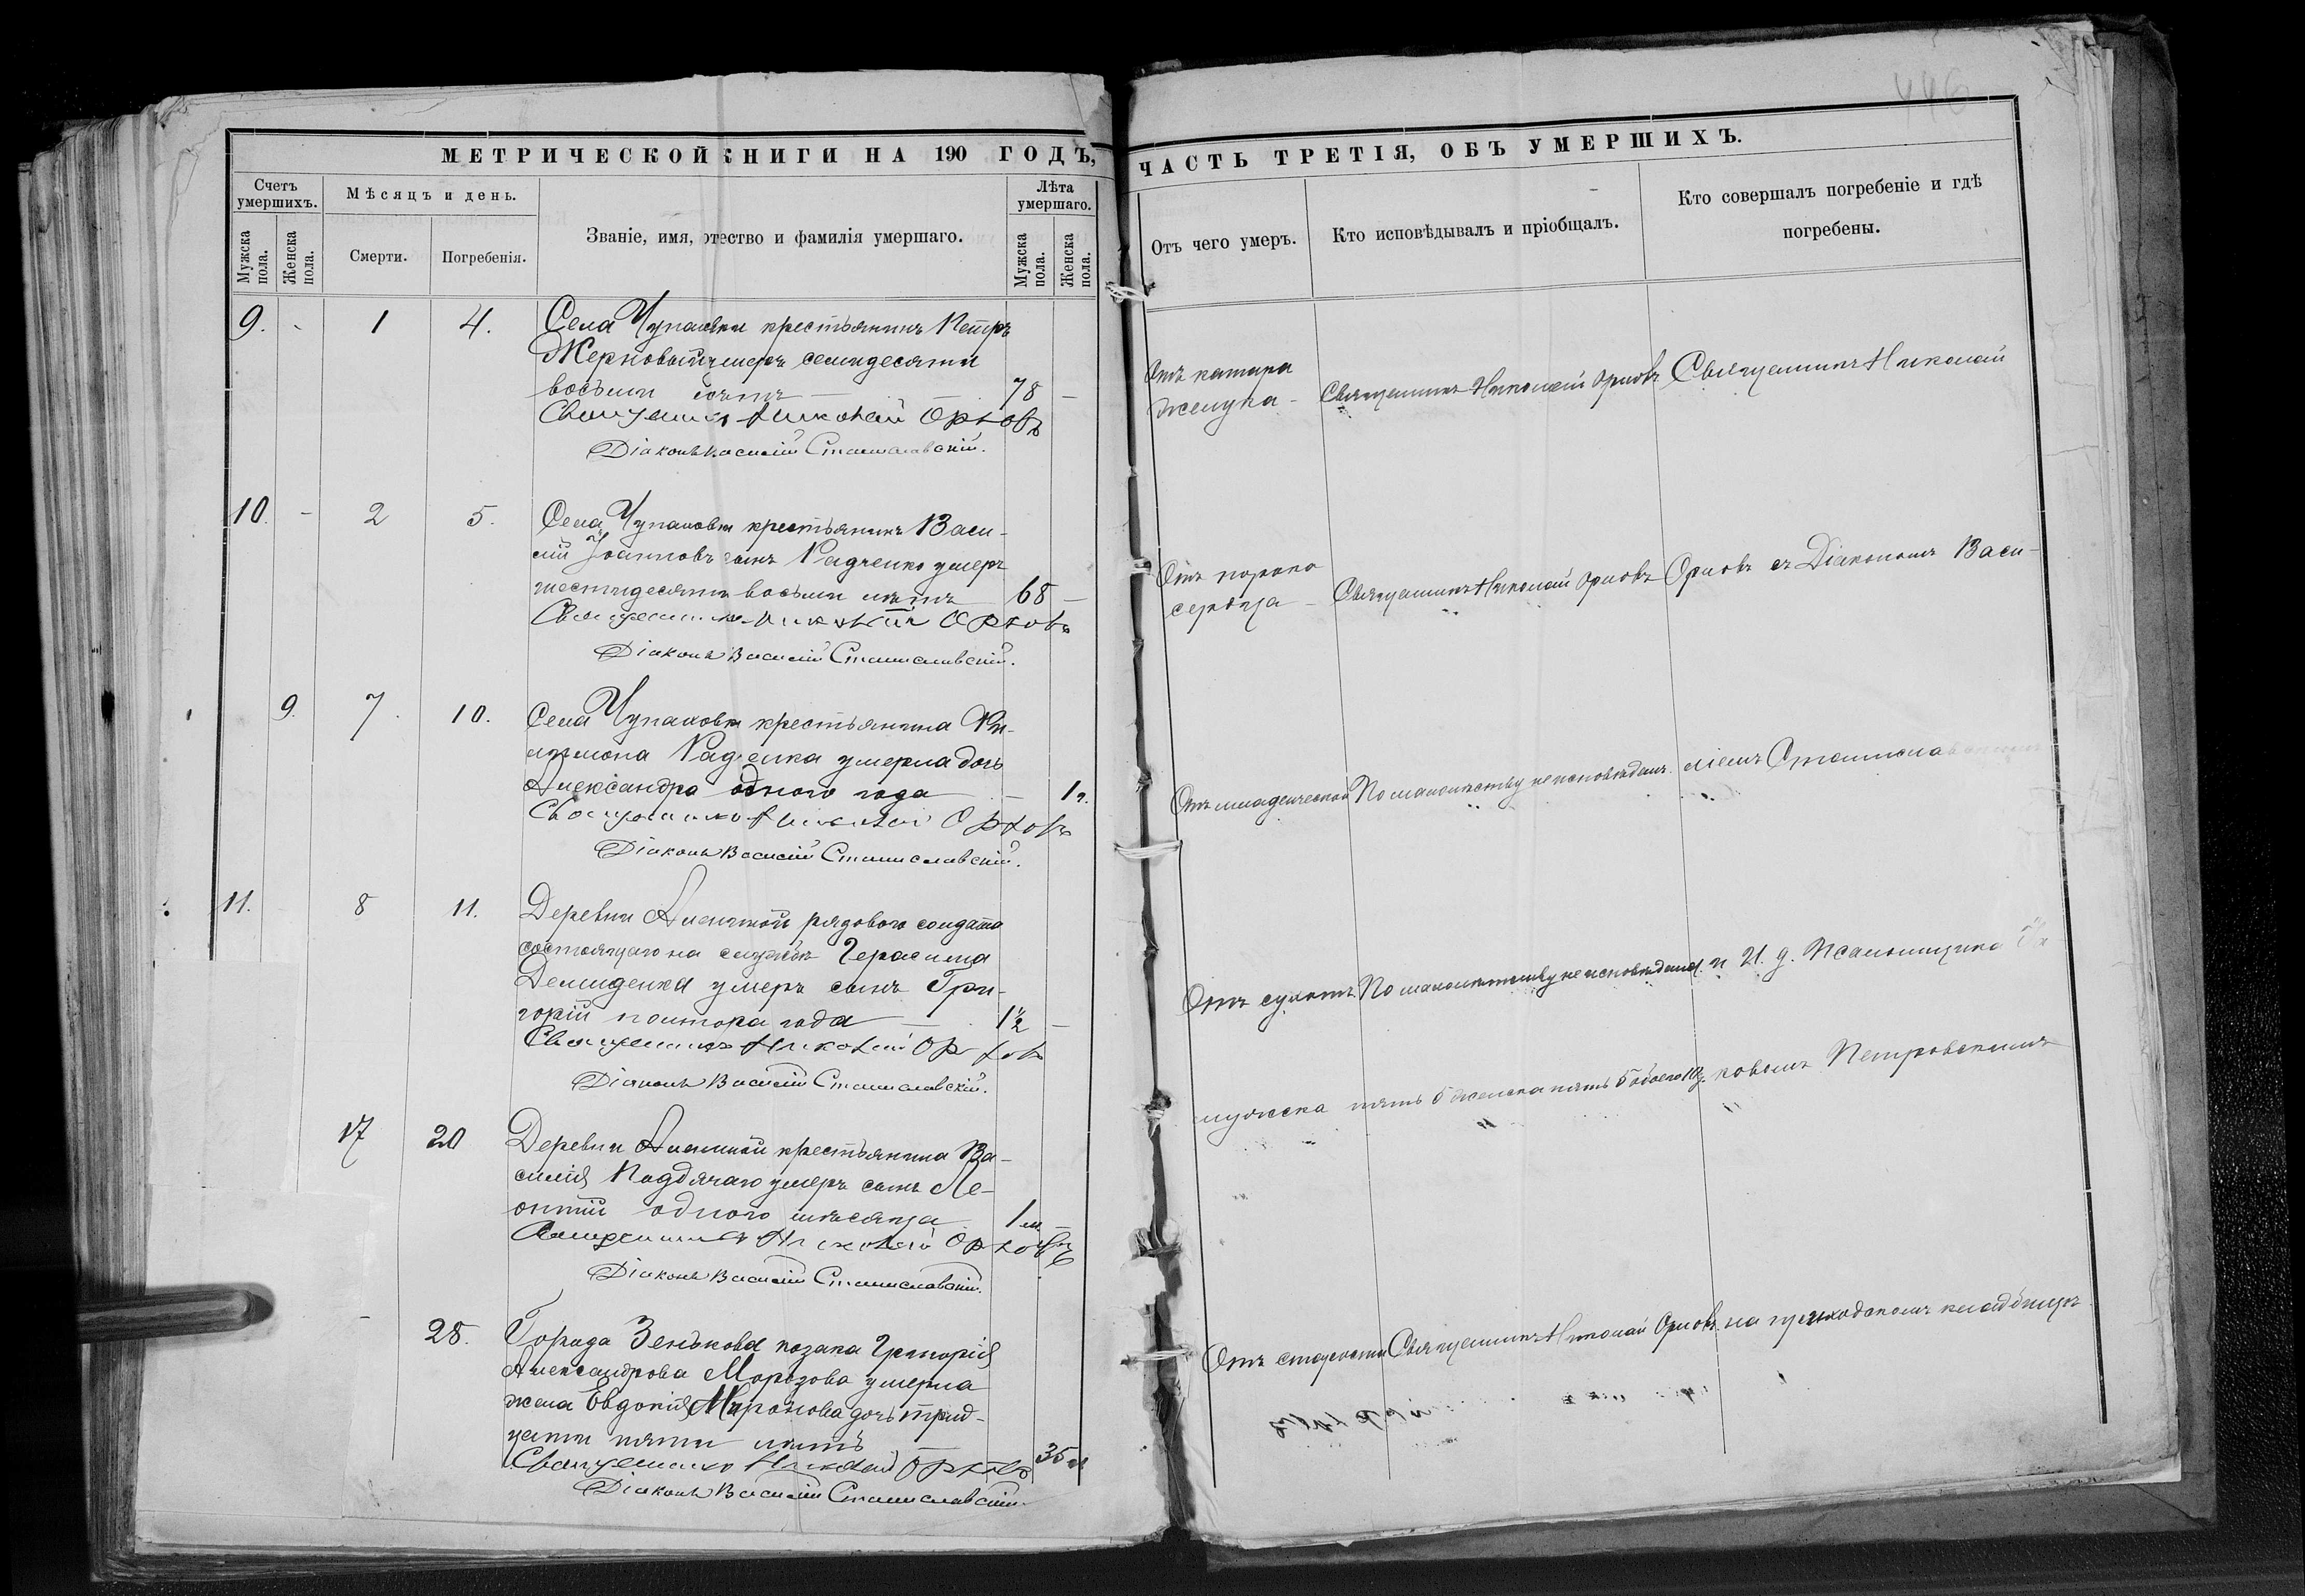 446
МЕТРИЧЕСКОЙ КНИГИ НА 190 ГОДЪ,
Счетъ умершихъ.
Мужска пола.
Женска пола.
Мѣсяцъ и день.
Смерти.
Погребенія.
Званіе, имя, отество и фамилія умершаго.
Лѣта умершаго.
Мужска пола.
Женска пола.
9. - 1 4. Села Чупаховки крестьянинъ Петръ
Жерновый умеръ семидесяти
восьми лѣтъ — 78 —
Священникъ Николай Орловъ
Діаконъ Василій Станиславскій.
10. - 2 5. Села Чупаховки крестьянинъ Васи-
лій Іоанновъ сынъ Радченко умеръ
шестидесяти восьми лѣтъ 68 —
Священникъ Николай Орловъ
Діаконъ Василій Станиславскій.
9. 7. 10. Села Чупаховки крестьянина
умерла дочь
Александра одного года — 1 г.
Священникъ Николай Орловъ
Діаконъ Василій Станиславскій.
11. 8 11. Деревни рядового солдата
состоящаго на службѣ Герасима
Демиденка умеръ сынъ Гри-
горій полтора года — 1½ —
Священникъ Николай Орловъ
Діаконъ Василій Станиславскій.
17 20 Деревни крестьянина Ва-
силія умеръ сынъ Ле-
онтій одного мѣсяца 1 м. —
Священникъ Николай Орловъ
Діаконъ Василій Станиславскій.
- 28. Города Зенькова козака Григорія
Александрова Морозова умерла
жена Евдокія Миронова дочь трид-
цати пяти лѣтъ — 35 л
Священникъ Николай Орловъ
Діаконъ Василій Станиславскій
ЧАСТЬ ТРЕТІЯ, ОБЪ УМЕРШИХЪ.
Отъ чего умеръ.
Кто исповѣдывалъ и пріобщалъ.
Кто совершалъ погребеніе и гдѣ погребены.
Отъ катара
желудка - Священникъ Николай Орловъ Священникъ Николай
Отъ порока
сердца - Священникъ Николай Орловъ Орловъ съ Діакономъ Васи-
Отъ младенческой По малолѣтству не исповѣдана. ліемъ Станиславскимъ
По малолѣтству не исповѣдана. и 21. д. Псаломщика
мужска пять 5 женска пять 5 обоего 10 ковомъ Петровскимъ
Отъ старости Священникъ Николай Орловъ на приходскомъ кладбищѣ